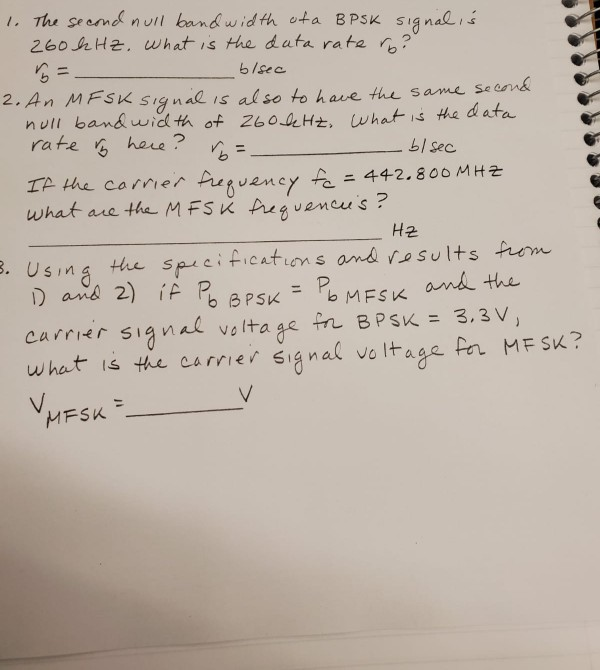 1. The second null bandwidth of a BPSK signal is
260 kHz. What is the data rate rb?
rb = ________ b/sec
2. An MFSK signal is also to have the same second
null bandwidth of 260 kHz. What is the data
rate rb here? rb = ________ b/sec
If the carrier frequency fc = 442.800 MHz
what are the MFSK frequencies?
________ Hz
3. Using the specifications and results from
1) and 2) if Pb BPSK = Pb MFSK and the
carrier signal voltage for BPSK = 3.3V,
what is the carrier signal voltage for MFSK?
VMFSK = ________ V